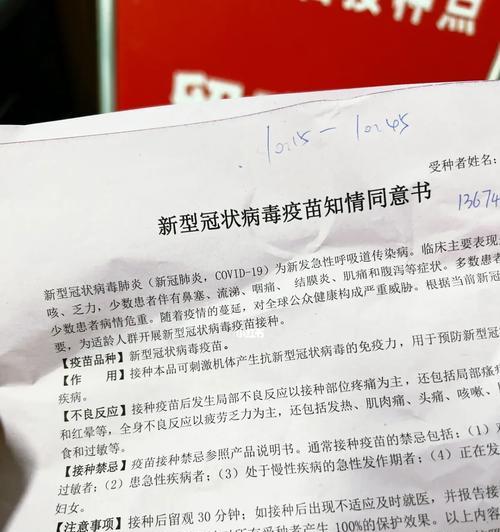 接种点
10:15 — 10:45
受种者姓名:
新型冠状病毒疫苗知情同意书
13674
新型冠状病毒肺炎（新冠肺炎，COVID-19）为新发急性呼吸道传染病。临床主要表现
咳、乏力，少数患者伴有鼻塞、流涕、咽痛、 结膜炎、肌痛和腹泻等症状。多数患者
少数患者病情危重。随着疫情的蔓延，对全球公众健康构成严重威胁。根据当前新冠
要，为适龄人群开展新型冠状病毒疫苗接种。
【疫苗品种】新型冠状病毒疫苗。
【作 用】接种本品可刺激机体产生抗新型冠状病毒的免疫力，用于预防新型冠
疾病。
【不良反应】接种疫苗后发生局部不良反应以接种部位疼痛为主，还包括局部瘙痒
和红晕等，全身不良反应以疲劳乏力为主，还包括发热、肌肉痛、头痛、咳嗽、
食和过敏等。
【接种禁忌】疫苗接种禁忌参照产品说明书。通常接种疫苗的禁忌包括:（1）对
过敏者;（2）患急性疾病者;（3）处于慢性疾病的急性发作期者;（4）正在发
妇女。
【注意事项】接种后留观 30 分钟; 如接种后出现不适应及时就医，并报告接
产生 100%的保护效果。以上内容